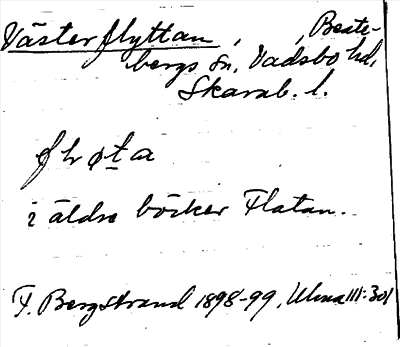 Västerflyttan, , Beate-
bergs sn, Vadsbo hd,
Skarab. l.
i äldre böcker Flatan.
F. Bergstrand 1898-99, Ulma 111:301